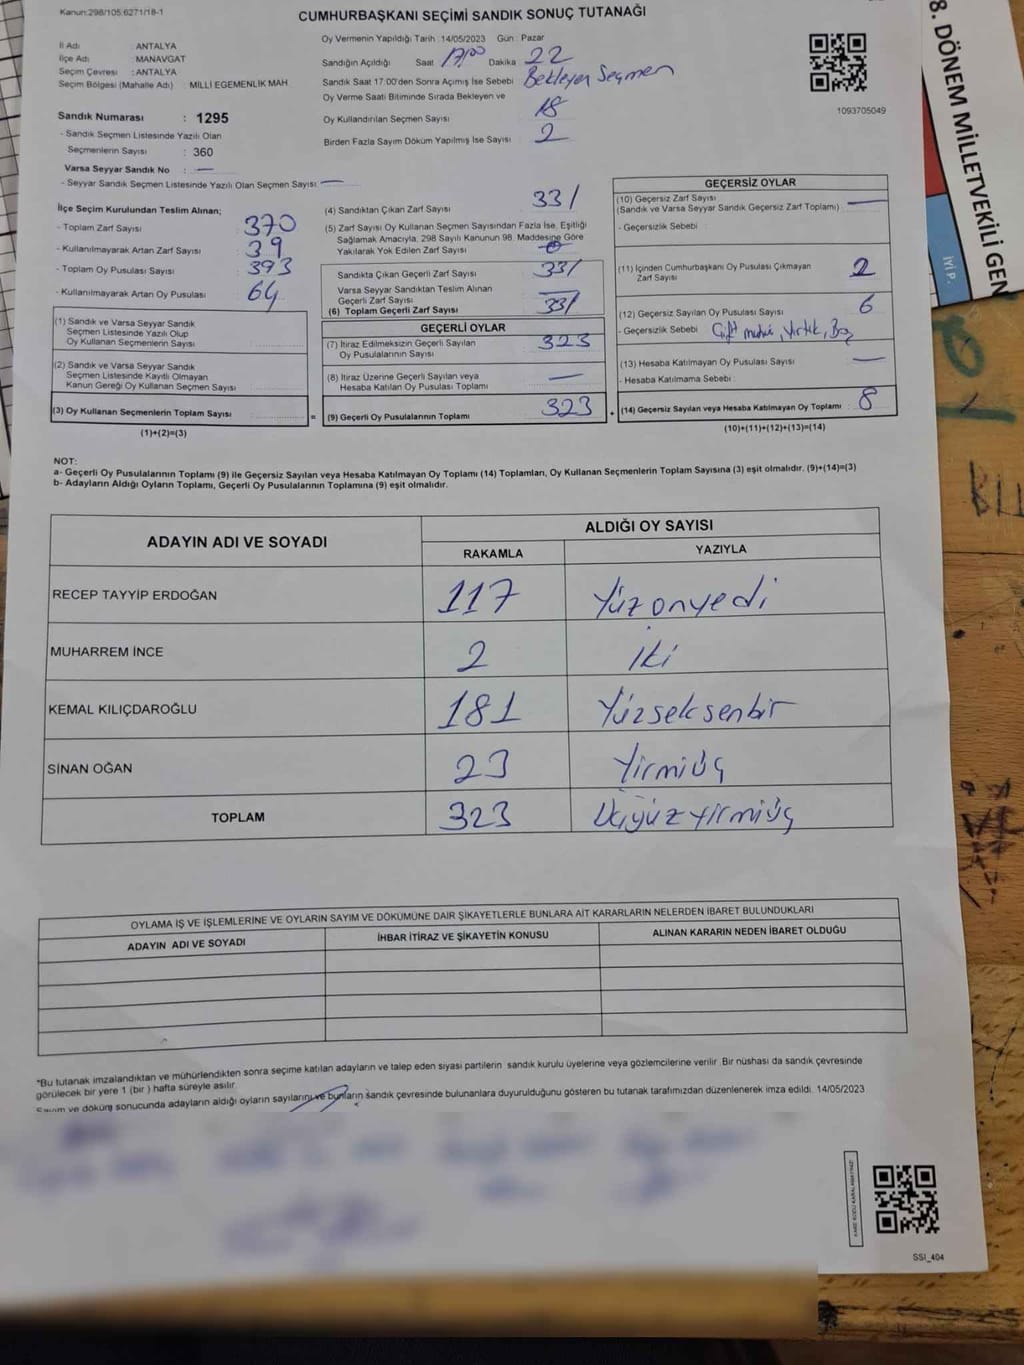 Kanun:298/105;6271/18-1
CUMHURBAŞKANI SEÇİMİ SANDIK SONUÇ TUTANAĞI
İl Adı : ANTALYA
İlçe Adı : MANAVGAT
Seçim Çevresi : ANTALYA
Seçim Bölgesi (Mahalle Adı) : MİLLİ EGEMENLİK MAH
Sandık Numarası : 1295
- Sandık Seçmen Listesinde Yazılı Olan
Seçmenlerin Sayısı : 360
Varsa Seyyar Sandık No : —
- Seyyar Sandık Seçmen Listesinde Yazılı Olan Seçmen Sayısı: —
Oy Vermenin Yapıldığı Tarih :14/05/2023 Gün : Pazar
Sandığın Açıldığı Saat 17,00 Dakika 22
Sandık Saat 17:00'den Sonra Açımış İse Sebebi Bekleyen Seçmen
Oy Verme Saati Bitiminde Sırada Bekleyen ve
Oy Kullandırılan Seçmen Sayısı : 18
Birden Fazla Sayım Döküm Yapılmış İse Sayısı : 2
1093705049
İlçe Seçim Kurulundan Teslim Alınan;
- Toplam Zarf Sayısı : 370
- Kullanılmayarak Artan Zarf Sayısı : 39
- Toplam Oy Pusulası Sayısı : 393
- Kullanılmayarak Artan Oy Pusulası : 64
(1) Sandık ve Varsa Seyyar Sandık
Seçmen Listesinde Yazılı Olup
Oy Kullanan Seçmenlerin Sayısı :
(2) Sandık ve Varsa Seyyar Sandık
Seçmen Listesinde Kayıtlı Olmayan
Kanun Gereği Oy Kullanan Seçmen Sayısı :
(3) Oy Kullanan Seçmenlerin Toplam Sayısı :
(1)+(2)=(3)
=
(4) Sandıktan Çıkan Zarf Sayısı : 331
(5) Zarf Sayısı Oy Kullanan Seçmen Sayısından Fazla İse, Eşitliği
Sağlamak Amacıyla, 298 Sayılı Kanunun 98. Maddesine Göre
Yakılarak Yok Edilen Zarf Sayısı :
Sandıkta Çıkan Geçerli Zarf Sayısı : 331
Varsa Seyyar Sandıktan Teslim Alınan
Geçerli Zarf Sayısı : —
(6) Toplam Geçerli Zarf Sayısı : 331
GEÇERLİ OYLAR
(7) İtiraz Edilmeksizin Geçerli Sayılan
Oy Pusulalarının Sayısı : 323
(8) İtiraz Üzerine Geçerli Sayılan veya
Hesaba Katılan Oy Pusulası Toplamı : —
(9) Geçerli Oy Pusulalarının Toplamı : 323
+
GEÇERSİZ OYLAR
(10) Geçersiz Zarf Sayısı
(Sandık ve Varsa Seyyar Sandık Geçersiz Zarf Toplamı) : —
- Geçersizlik Sebebi :
(11) İçinden Cumhurbaşkanı Oy Pusulası Çıkmayan
Zarf Sayısı : 2
(12) Geçersiz Sayılan Oy Pusulası Sayısı : 6
- Geçersizlik Sebebi : Çift mühür, Yırtık, Boş
(13) Hesaba Katılmayan Oy Pusulası Sayısı : —
- Hesaba Katılmama Sebebi :
(14) Geçersiz Sayılan veya Hesaba Katılmayan Oy Toplamı : 8
(10)+(11)+(12)+(13)=(14)
NOT:
a- Geçerli Oy Pusulalarının Toplamı (9) ile Geçersiz Sayılan veya Hesaba Katılmayan Oy Toplamı (14) Toplamları, Oy Kullanan Seçmenlerin Toplam Sayısına (3) eşit olmalıdır. (9)+(14)=(3)
b- Adayların Aldığı Oyların Toplamı, Geçerli Oy Pusulalarının Toplamına (9) eşit olmalıdır.
ADAYIN ADI VE SOYADI
ALDIĞI OY SAYISI
RAKAMLA YAZIYLA
RECEP TAYYİP ERDOĞAN 117 Yüzonyedi
MUHARREM İNCE 2 İki
KEMAL KILIÇDAROĞLU 181 Yüzseksenbir
SİNAN OĞAN 23 Yirmiüç
TOPLAM 323 Üçyüzyirmiüç
OYLAMA İŞ VE İŞLEMLERİNE VE OYLARIN SAYIM VE DÖKÜMÜNE DAİR ŞİKAYETLERLE BUNLARA AİT KARARLARIN NELERDEN İBARET BULUNDUKLARI
ADAYIN ADI VE SOYADI İHBAR İTİRAZ VE ŞİKAYETİN KONUSU ALINAN KARARIN NEDEN İBARET OLDUĞU
*Bu tutanak imzalandıktan ve mühürlendikten sonra seçime katılan adayların ve talep eden siyasi partilerin sandık kurulu üyelerine veya gözlemcilerine verilir .Bir nüshası da sandık çevresinde
görülecek bir yere 1 (bir ) hafta süreyle asılır.
Sayım ve döküm sonucunda adayların aldığı oyların sayılarını ve bunların sandık çevresinde bulunanlara duyurulduğunu gösteren bu tutanak tarafımızdan düzenlenerek imza edildi. 14/05/2023
SSI_404
8. DÖNEM MİLLETVEKİLİ GEN
İYİ P.